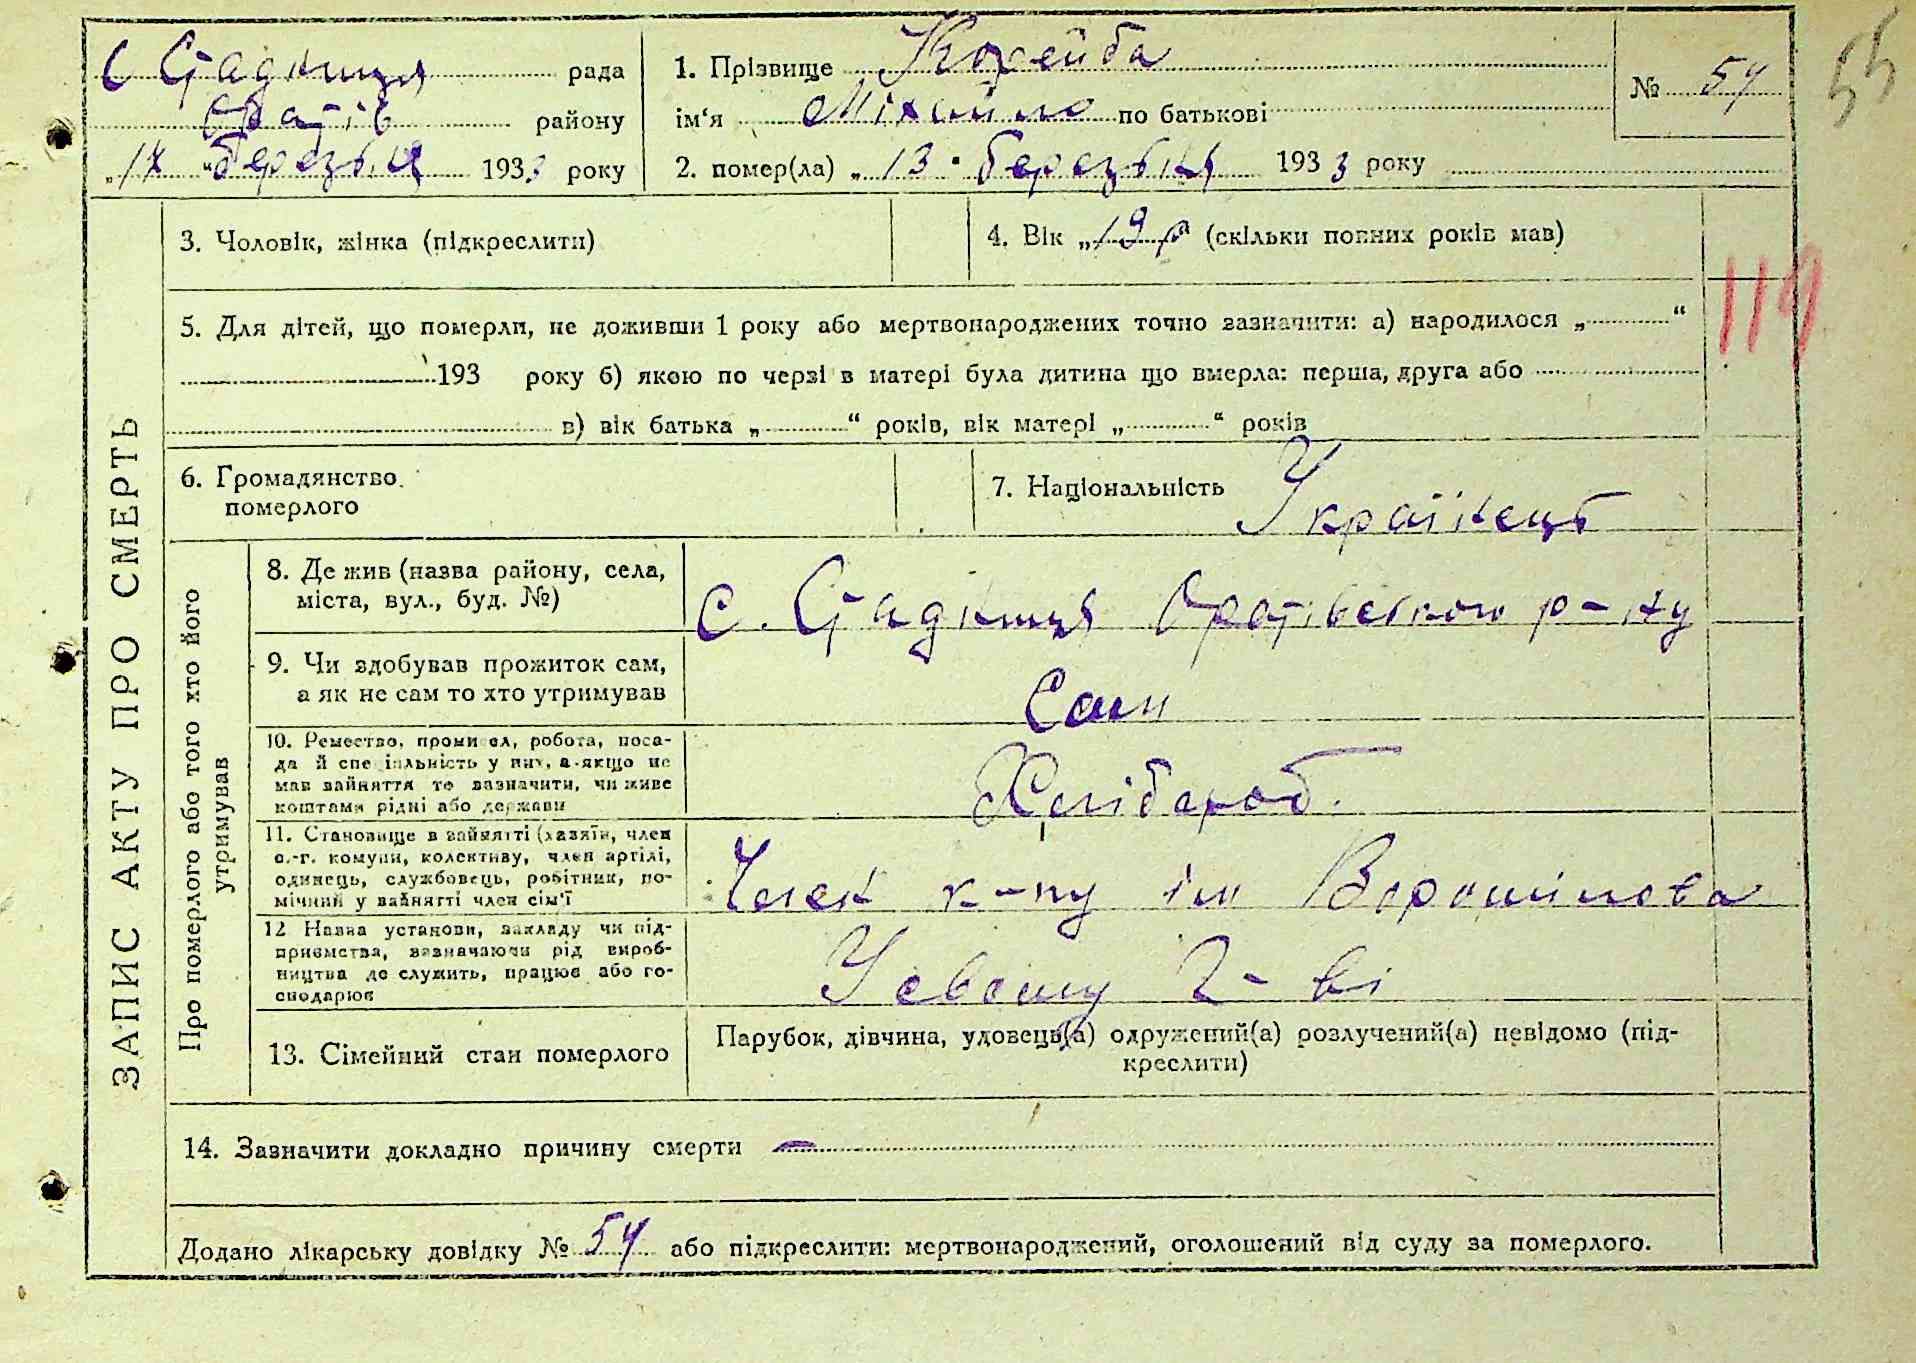 с Стадниця рада
Оратів району
„17 " березня 1933 року
1. Прізвище Коженба
ім'я Міхайло по батькові
2. помер(ла) „ 13 " березня 1933 року
№ 54
55
3. Чоловік, жінка (підкреслити)
4. Вік „19 р" (скільки повних років мав)
119
5. Для дітей, що померли, не доживши 1 року або мертвонароджених точно зазначити: а) народилося „ “
193 року б) якою по черзі в матері була дитина що вмерла: перша, друга або
в) вік батька „ “ років, вік матері „ “ років
6. Громадянство
померлого
7. Національність Українець
ЗАПИС АКТУ ПРО СМЕРТЬ
Про померлого або того хто його
утримував
8. Де жив (назва району, села,
міста, вул., буд. №)
с. Стадниця Оратівського р-ну
9. Чи здобував прожиток сам,
а як не сам то хто утримував
Сам
10. Ремество, промисел, робота, поса-
да й спеціяльність у них, а якщо не
мав зайняття то зазначити, чи живе
коштами рідні або держави
Хлібароб.
11. Становище в зайнятті (хазяїн, член
с.-г. комуни, колективу, член артілі,
одинець, службовець, робітник, по-
мічний у зайнятті член сім'ї
Член к-пу ім Ворошилова
12 Назва установи, закладу чи під-
приємства, зазначаючи рід вироб-
ництва де служить, працює або го-
сподарює
Усвому г-ві
13. Сімейний стан померлого
Парубок, дівчина, удовець(а) одружений(а) розлучений(а) невідомо (під-
креслити)
14. Зазначити докладно причину смерти –
Додано лікарську довідку № 54 або підкреслити: мертвонароджений, оголошений від суду за померлого.